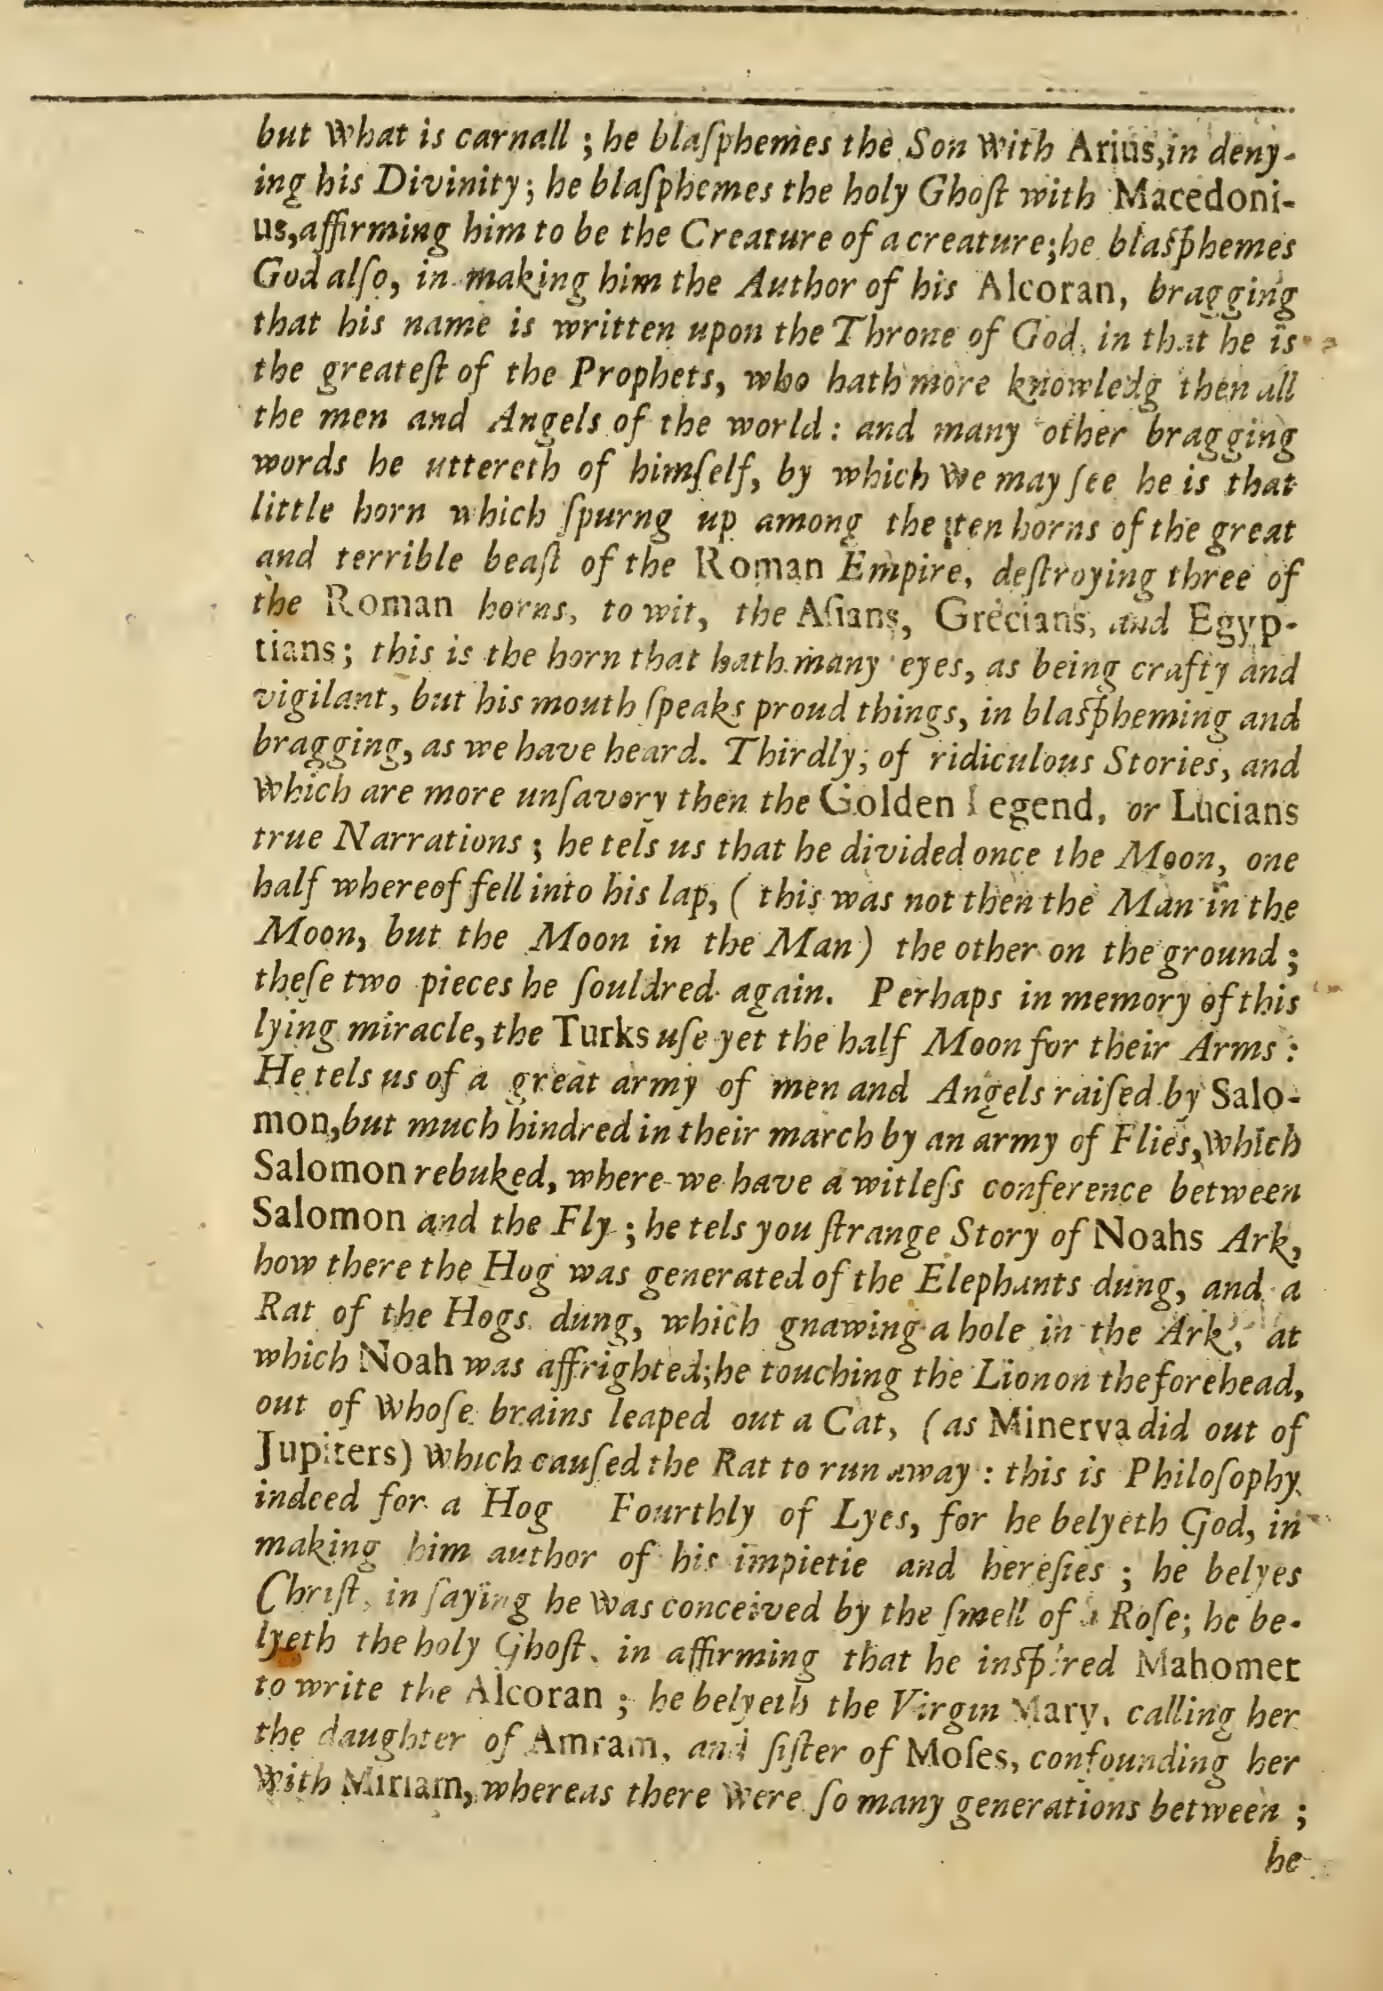 but what is carnall ; he blaſphemes the Son with Arius,in deny-
ing his Divinity; he blaſphemes the holy Ghoſt with Macedoni-
us,affirming him to be the Creature of a creature;he blaſphemes
God alſo, in making him the Author of his Alcoran, bragging
that his name is written upon the Throne of God, in that he is
the greateſt of the Prophets, who hath more knowledg then all
the men and Angels of the world : and many other bragging
words he uttereth of himſelf, by which we may ſee he is that
little horn which ſpurng up among the ten horns of the great
and terrible beaſt of the Roman Empire, deſtroying three of
the Roman horns, to wit, the Aſians, Grecians, and Egyp-
tians; this is the horn that hath many eyes, as being crafty and
vigilant, but his mouth ſpeaks proud things, in blaſpheming and
bragging, as we have heard. Thirdly, of ridiculous Stories, and
which are more unſavory then the Golden Legend, or Lucians
true Narrations ; he tels us that he divided once the Moon, one
half whereof fell into his lap, ( this was not then the Man in the
Moon, but the Moon in the Man) the other on the ground ;
theſe two pieces he ſouldred again. Perhaps in memory of this
lying miracle, the Turks uſe yet the half Moon for their Arms :
He tels us of a great army of men and Angels raiſed by Salo-
mon,but much hindred in their march by an army of Flies,which
Salomon rebuked, where we have a witleſs conference between
Salomon and the Fly ; he tels you ſtrange Story of Noahs Ark,
how there the Hog was generated of the Elephants dung, and a
Rat of the Hogs dung, which gnawing a hole in the Ark, at
which Noah was affrighted;he touching the Lion on the forehead,
out of whoſe brains leaped out a Cat, (as Minerva did out of
Jupiters) which cauſed the Rat to run away : this is Philoſophy
indeed for a Hog Fourthly of Lyes, for he belyeth God, in
making him author of his impietie and hereſies ; he belyes
Chriſt, in ſaying he was conceived by the ſmell of a Roſe; he be-
lyeth the holy Ghoſt, in affirming that he inſpired Mahomet
to write the Alcoran ; he belyeth the Virgin Mary, calling her
the daughter of Amram, and ſiſter of Moſes, confounding her
with Miriam, whereas there were ſo many generations between ;
he